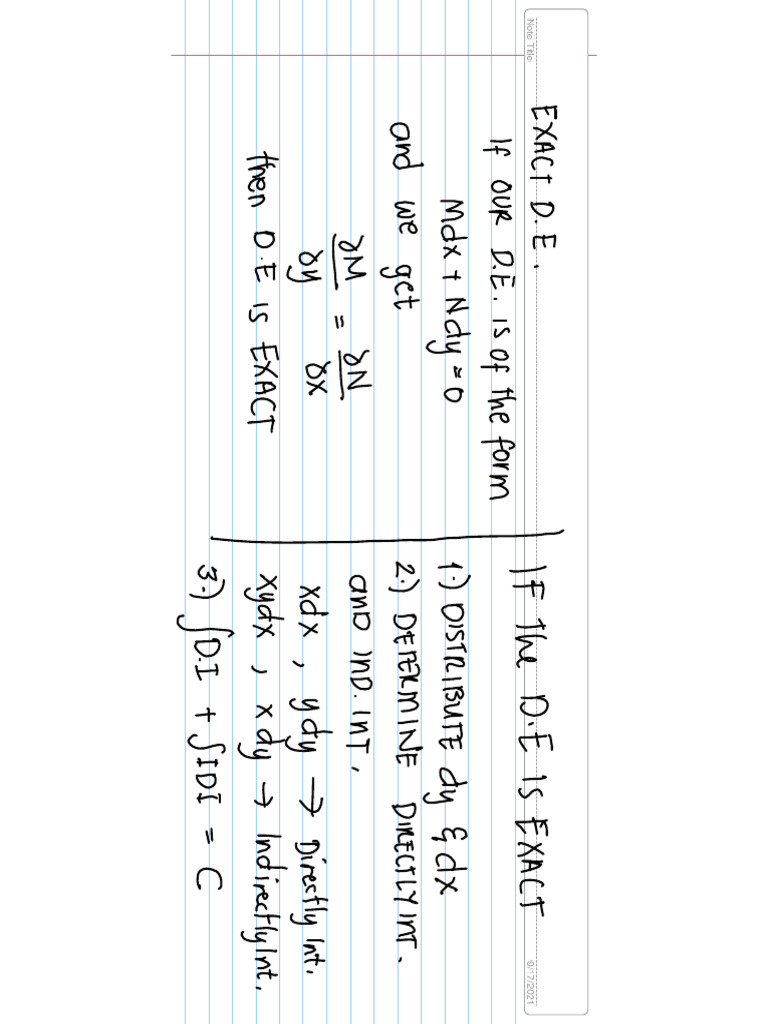 Note Title
EXACT D.E.
If OUR D.E. is of the form
Mdx + Ndy = 0
and we get
∂M/∂y = ∂N/∂x
then D.E IS EXACT
IF the D.E IS EXACT
1.) DISTRIBUTE dy & dx
2.) DETERMINE DIRECTLY INT.
and IND. INT.
xdx , ydy → Directly Int.
xydx , xdy → Indirectly Int.
3.) ∫D.I + ∫IDI = C